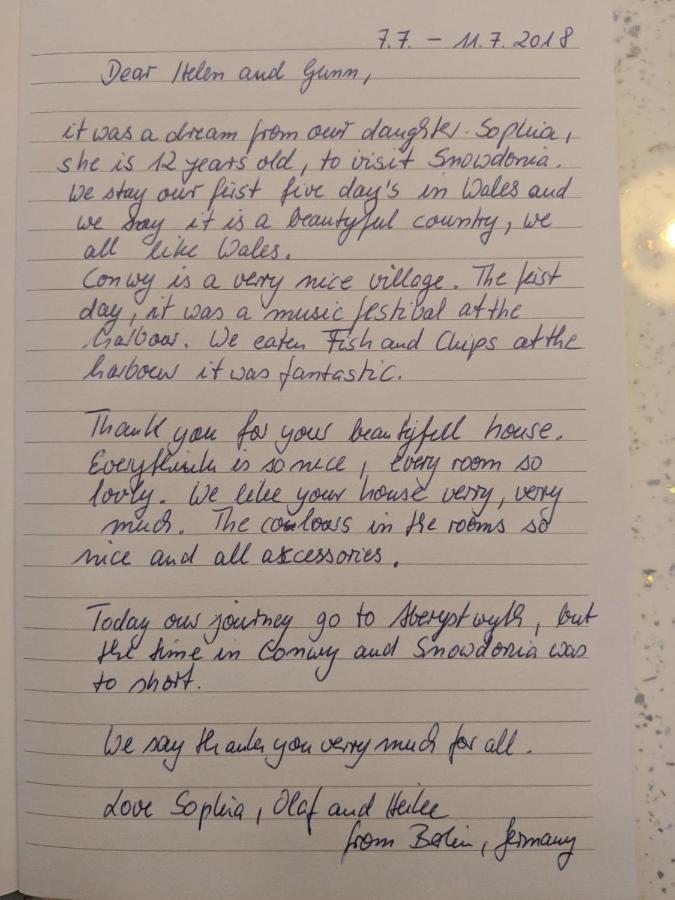 7.7. – 11.7.2018
Dear Helen and Gunn,
it was a dream from our daughter Sophia,
she is 12 years old, to visit Snowdonia.
We stay our first five day's in Wales and
we say it is a beautyful country, we
all like Wales.
Conwy is a verry nice village. The fist
day, it was a music festival at the
harbour. We eaten Fish and Chips at the
harbour it was fantastic.
Thank you for your beautyfull house.
Everythink is so nice, every room so
lovly. We like your house verry, verry
much. The coulours in the rooms so
nice and all accessories.
Today our journey go to Aberystwyth, but
the time in Conwy and Snowdonia was
to short.
We say thank you verry much for all.
Love Sophia, Olaf and Heike
from Berlin, Germany